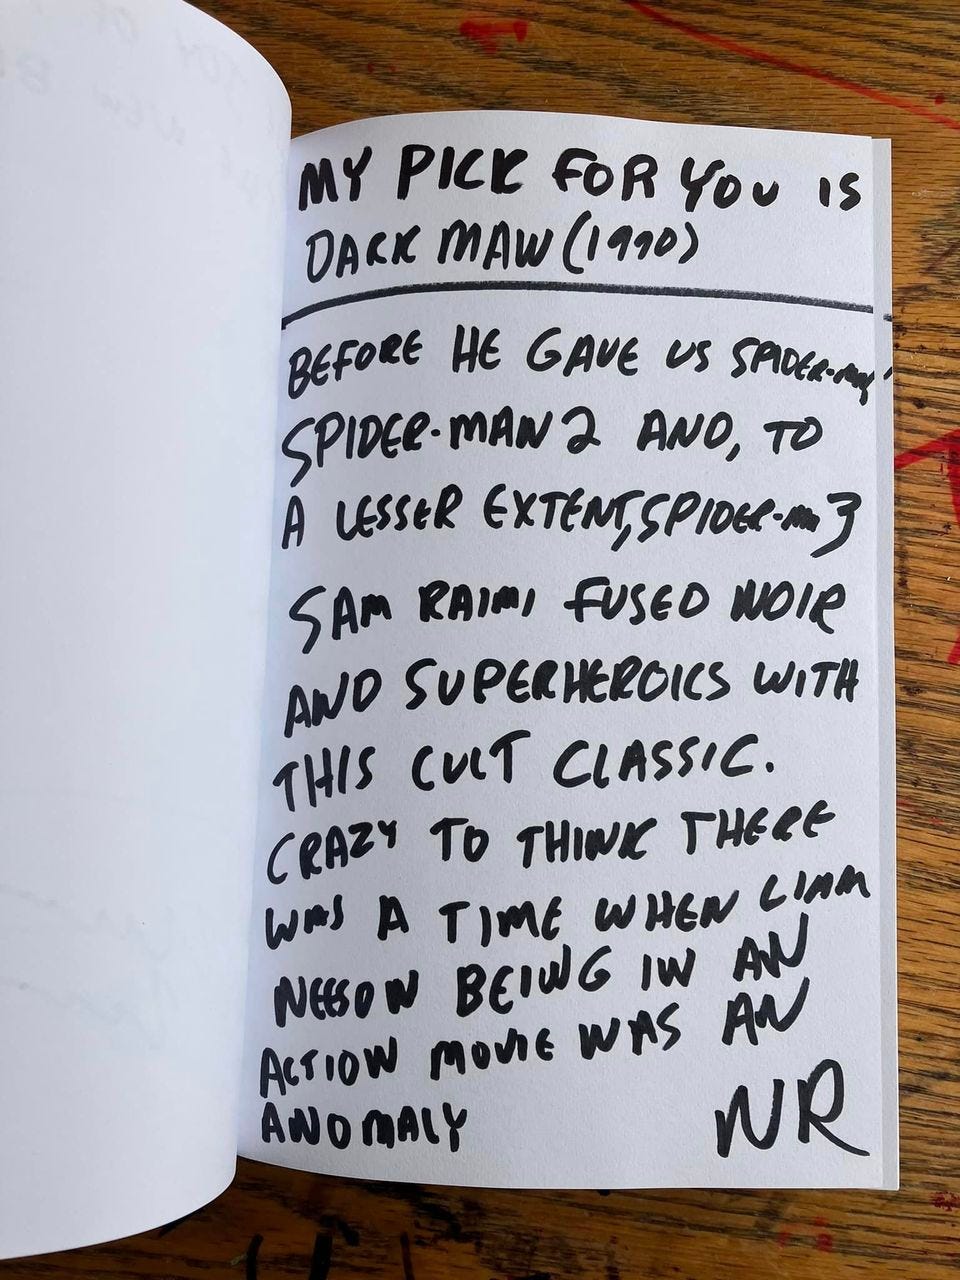 MY PICK FOR YOU IS
DARK MAN (1990)
BEFORE HE GAVE US SPIDER-MAN,
SPIDER-MAN 2 AND, TO
A LESSER EXTENT, SPIDER-MAN 3
SAM RAIMI FUSED NOIR
AND SUPERHEROICS WITH
THIS CULT CLASSIC.
CRAZY TO THINK THERE
WAS A TIME WHEN LIAM
NEESON BEING IN AN
ACTION MOVIE WAS AN
ANOMALY
NR